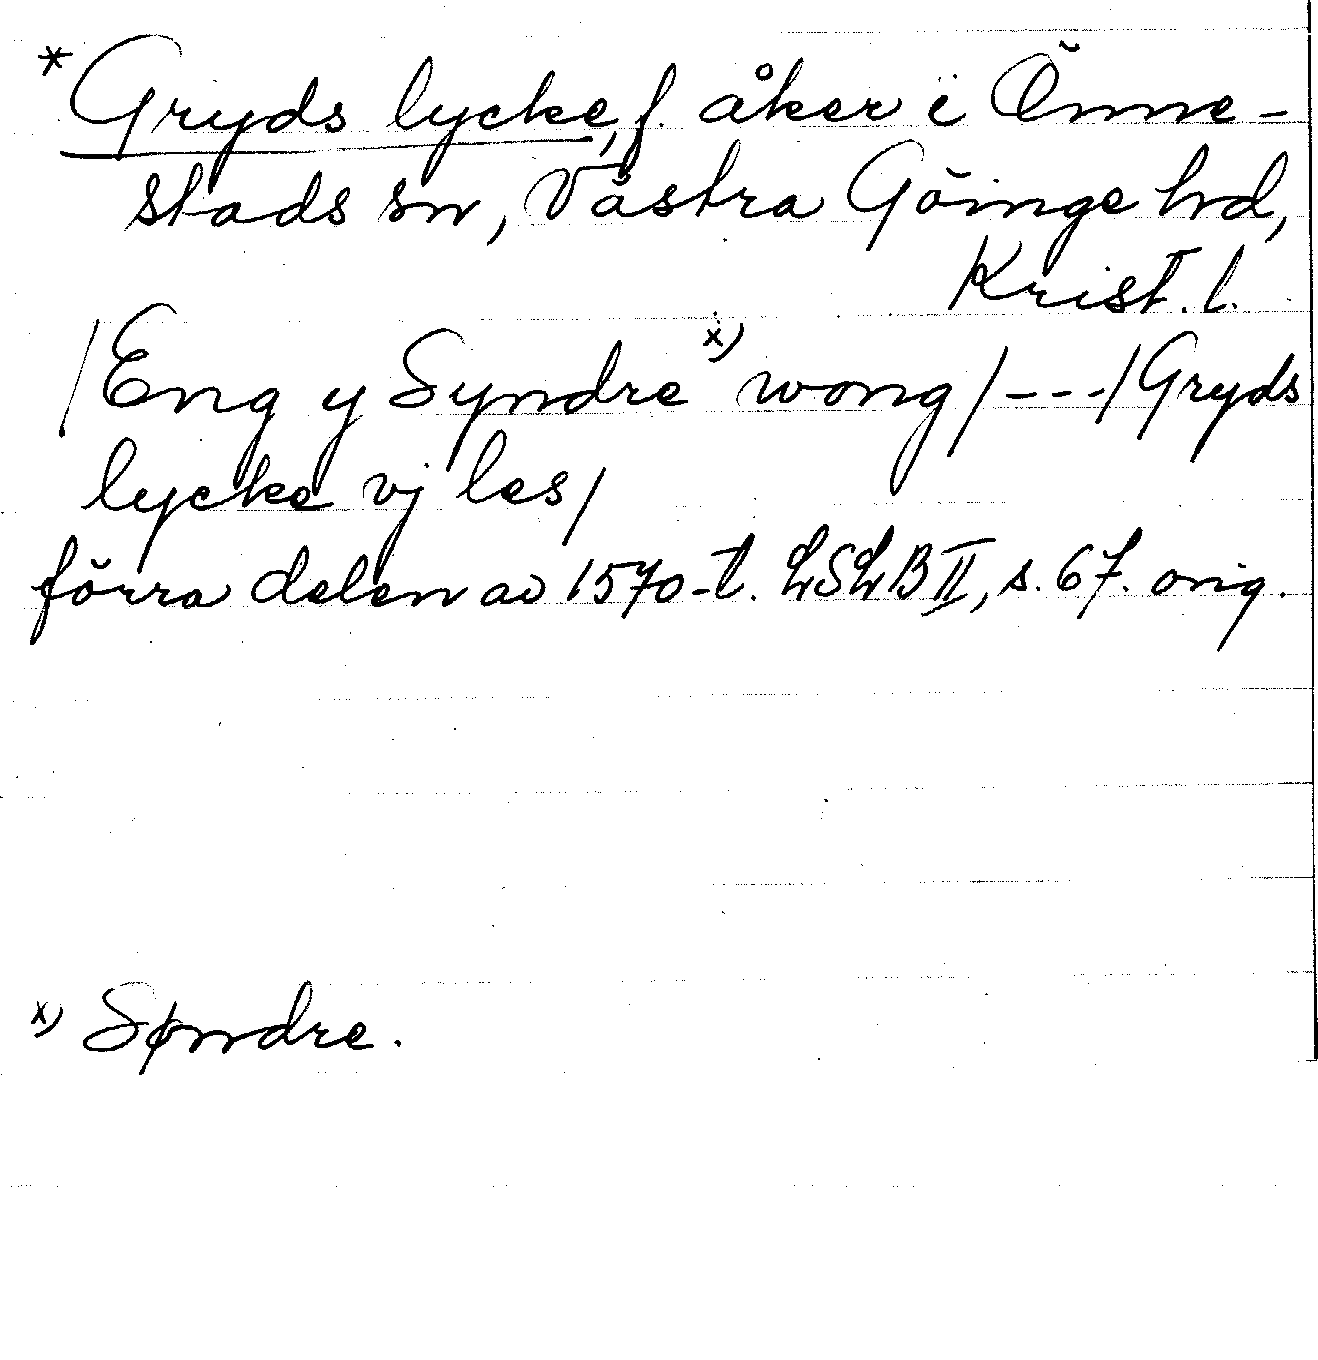 * Gryds lycke, f. åker i Önne-
stads sn, Västra Göinge hd,
Krist. l.
/Eng y Syndre x) wong/---/Gryds
lycke vj les/
förra delen av 1570-t. LSLB II, s. 67. orig.
x) Søndre.